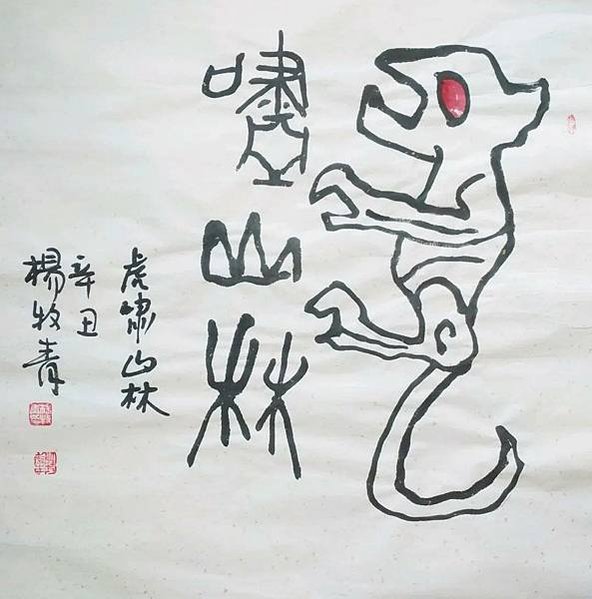 虎
嘯山林
虎啸山林
辛丑
楊牧青